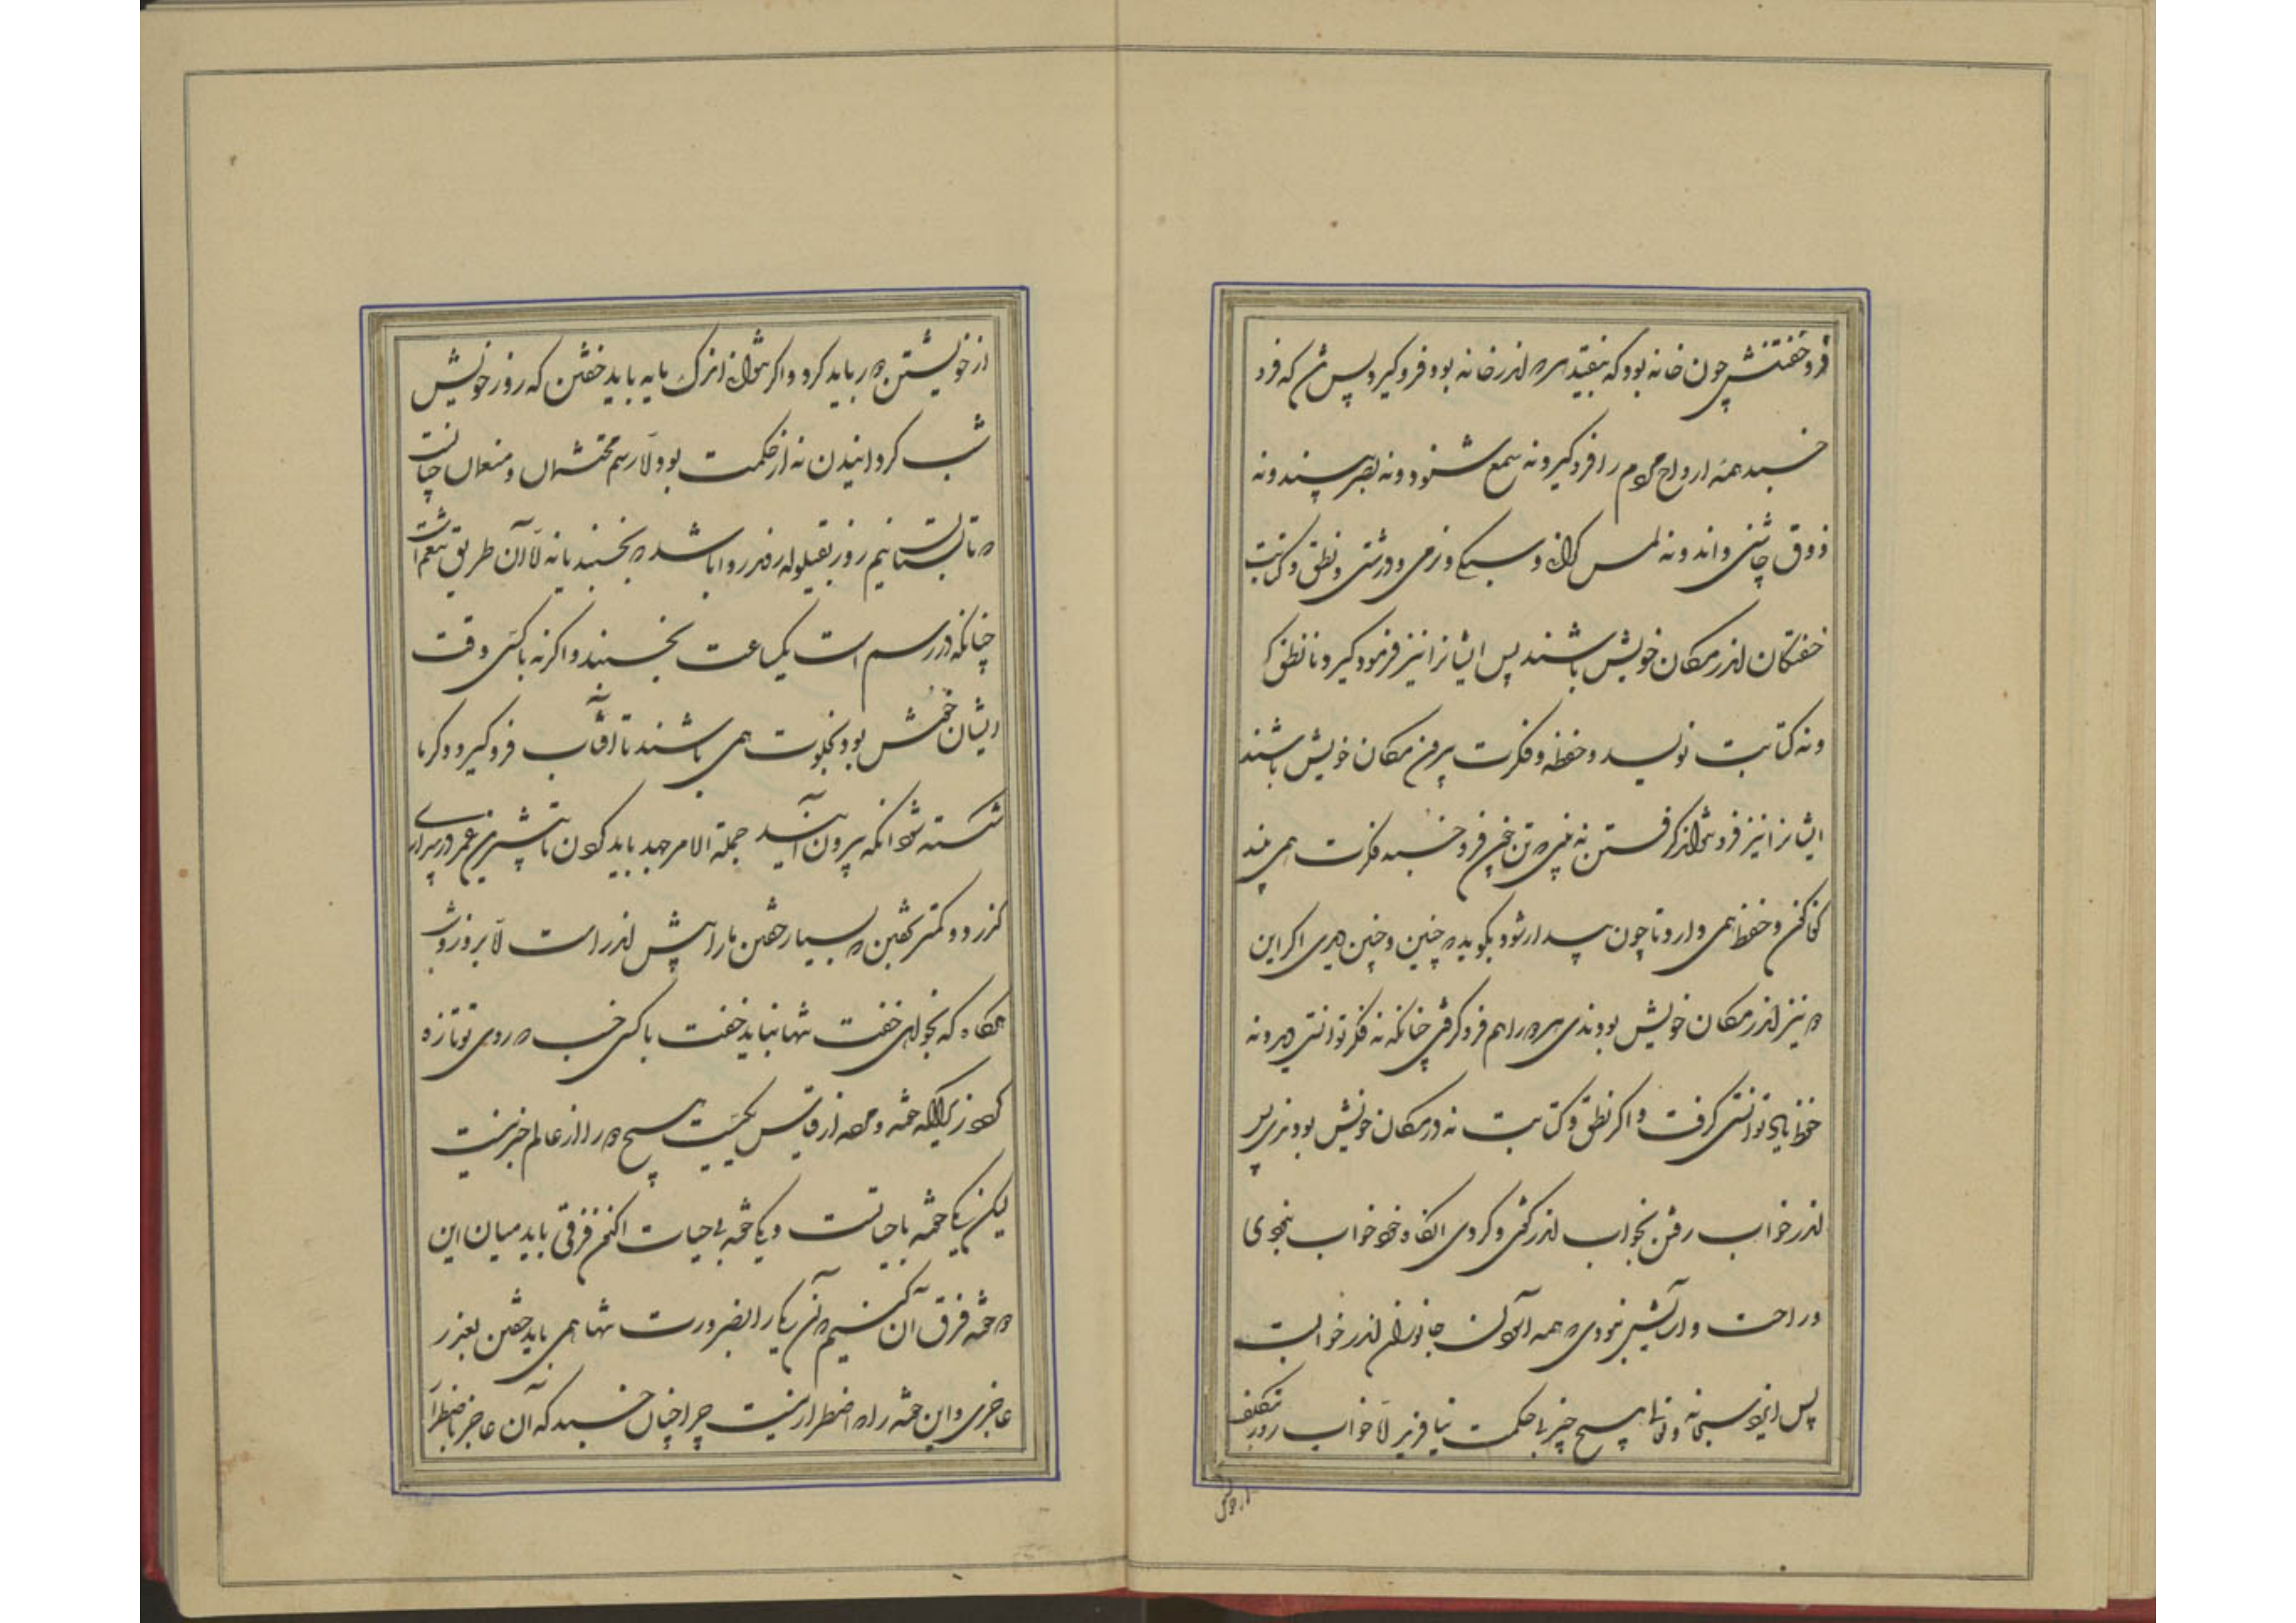 فرو خفتنش چون خانه بود که بیفتد هر که اندر خانه بود فرو گیرد پس تن که فرو
خسبد همه ارواح مردم را فرو گیرد نه سمع شنود و نه بصر بیند و نه
ذوق چاشنی داند و نه لمس گرانی و سبکی و نرمی و درشتی و نطق و کتابت
خفتگان اندر مکان خویش باشند پس ایشانرا نیز فرو گیرد تا نه نطق
و نه کتابت نویسد و حفظ و فکرت بیرون مکان خویش باشند
ایشانرا نیز فرو نتواند گرفتن نه بینی که تن چون فرو خسبد فکرت همی بیند
گوناگون و حفظ همی دارد تا چون بیدار شود بگوید که چنین و چنین دیدم اگر این
که نیز اندر مکان خویش بودندی هر دو را هم فرو گرفتی چنانکه نه فکر توانستی دید و نه
حفظ یاد توانستی گرفت و اگر نطق و کتابت نه در مکان خویش بودندی پس
اندر خواب رفتن بخواب اندر گفتی و کردی آنگاه خود خواب نبودی
و راحت و آسایش نبودی که همه آسایش جانوران اندر خوابست
پس ایزد سبحانه و تعالی هیچ چیز بی حکمت نیافرید لا خواب روز بتکلف
از خویش
از خویشتن دور باید کرد و اگر نتوانی اندک مایه باید خفتن که روز خویش
شب گردانیدن نه از حکمت بود لا رسم محتشمان و منعمان چنانست
که تابستان نیم روز بقیلوله روند روا باشد که بخسبند یا نه لا آن طریق تنعم است
چنانکه در رسم است یک ساعت بخسبند و اگر نه با کسی که وقت
ایشان خوش بود بخلوت همی باشند تا آفتاب فرو گیرد و گرما
شکسته شود آنکه بیرون آیند جملة الامر جهد باید کردن تا بیشترین عمر در بیداری
گذرد و کمتر بخفتن که بسیار خفتن ما را پیش اندر است لا بروز و شب
هرگاه که بخواهی خفت تنها نباید خفت با کسی خسب که روی تو تازه
کند زیرا که خفته و مرده از قیاس یکیست هیچ دو را از عالم خبر نیست
لیکن یکی خفته با حیاتست و یکی خفته بی حیات اکنون فرقی باید میان این
دو خفته فرق آن کنیم که آن یکی را بضرورت تنها همی باید خفتن بعذر
عاجزی و این خفته را که اضطرار نیست چرا چنان خسبد که آن عاجز باضطرار